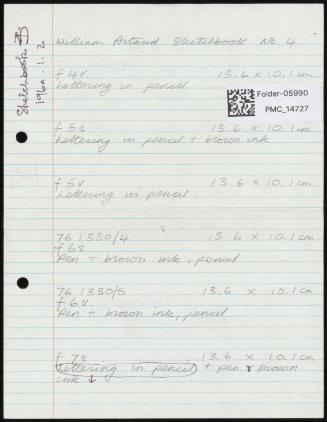 Sketchbooks B
196a.1.2
William Artaud Sketchbook No. 4
f 4v. 13.6 x 10.1 cm
Lettering in pencil
Folder-05990
PMC_14727
f 5r 13.6 x 10.1 cm
Lettering in pencil + brown ink
f 5v 13.6 x 10.1 cm.
Lettering in pencil
76 1330/4 13.6 x 10.1 cm
f 6r
Pen + brown ink, pencil
76 1330/5 13.6 x 10.1 cm
f 6v.
Pen + brown ink, pencil
f 7r 13.6 x 10.1 cm
Lettering in pencil + pen & brown
ink ↓